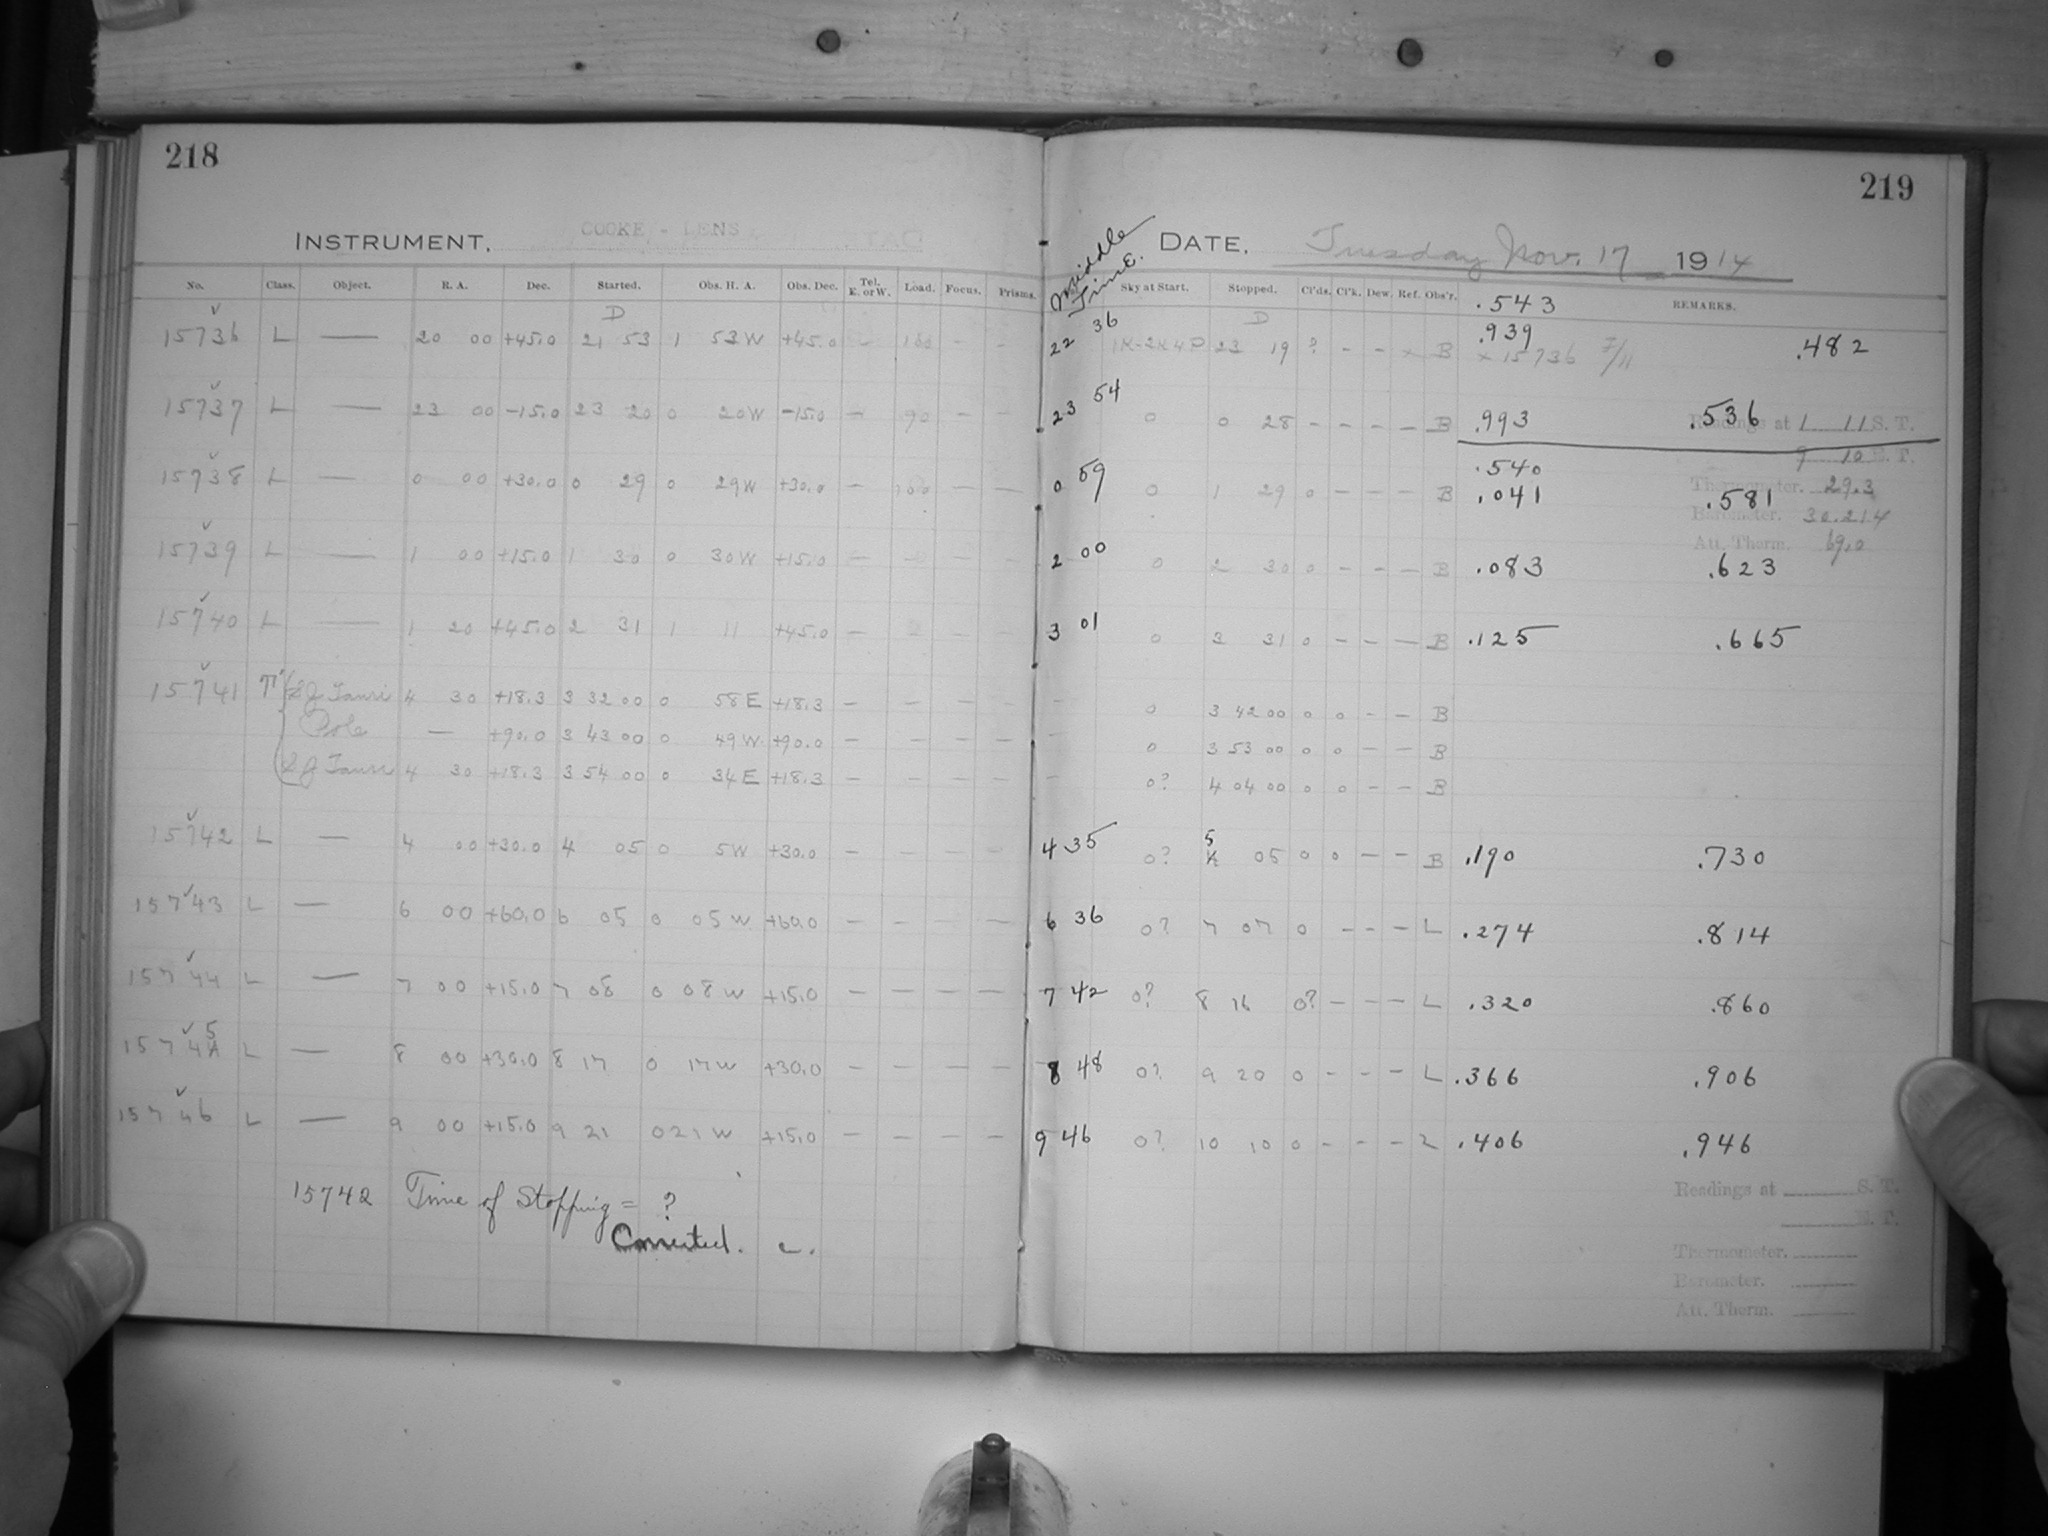 218
INSTRUMENT. COOKE - LENS
No. Class. Object. R. A. Dec. Started. Obs. H. A. Obs. Dec. Tel. E. or W. Load. Focus. Prisms.
D
15736 L — 20 00 +45.0 21 53 1 53W +45.0 100 – –
15737 L — 23 00 –15.0 23 20 0 20W –15.0 – 90 – –
15738 L — 0 00 +30.0 0 29 0 29W +30.0 – 100 – –
15739 L — 1 00 +15.0 1 30 0 30W +15.0 – – – –
15740 L — 1 20 +45.0 2 31 1 11 +45.0 – – –
15741 Tauri 4 30 +18.3 3 32 00 0 58E +18.3 – – – –
Pole — +90.0 3 43 00 0 49W +90.0 – – – –
Tauri 4 30 +18.3 3 54 00 0 34E +18.3 – – – –
15742 L — 4 00 +30.0 4 05 0 5W +30.0 – – – –
15743 L — 6 00 +60.0 6 05 0 05W +60.0 – – – –
15744 L — 7 00 +15.0 7 08 0 08W +15.0 – – – –
15745 L — 8 00 +30.0 8 17 0 17W +30.0 – – – –
15746 L — 9 00 +15.0 9 21 0 21W +15.0 – – – –
15742 Time of Stopping = ?
Corrected. c.
219
Middle Time. DATE. Tuesday Nov. 17 1914
Sky at Start. Stopped. Cl'ds. Cl'k. Dew. Ref. Obs'r. .543 REMARKS.
D
22 36 1K-2K4P 23 19 ? – – x B .939 .482
x 15736 F/11
23 54 0 0 28 – – – – B .993 .536
Readings at 1 11 S. T.
9 10 E. T.
.540
0 59 0 1 29 0 – – – B .041 .581
Thermometer. 29.3
Barometer. 30.214
Att. Therm. 69.0
2 00 0 2 30 0 – – – B .083 .623
3 01 0 3 31 0 – – – B .125 .665
0 3 42 00 0 0 – – B
0 3 53 00 0 0 – – B
0? 4 04 00 0 0 – – B
4 35 0? 5 05 0 0 – – B .190 .730
6 36 0? 7 07 0 – – – L .274 .814
7 42 0? 8 16 0? – – – L .320 .860
8 48 0? 9 20 0 – – – L .366 .906
9 46 0? 10 10 0 – – – L .406 .946
Readings at S. T.
E. T.
Thermometer.
Barometer.
Att. Therm.